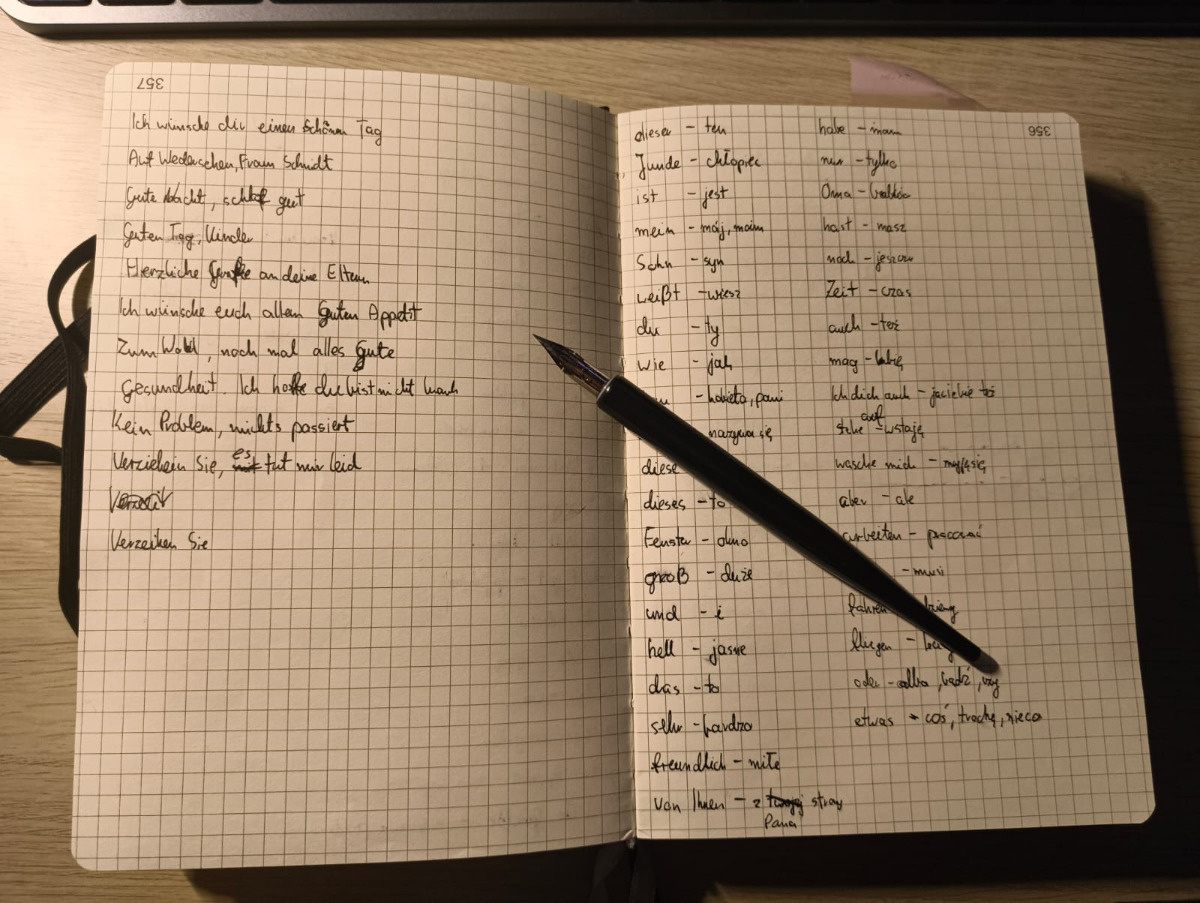 357
Ich wünsche dir einen schönen Tag
Auf Wedersehen, Fraun Schmidt
Gute Nacht, schlaf gut
Guten Tag, Kinder
Herzliche an deine Eltern
Ich wünsche euch allen Guten Appetit
Zum Wohl, noch mal alles Gute
Gesundheit. Ich hoffe du bist nicht krank
Kein Problem, nichts passiert
Verziehein Sie, es tut mir leid
Verzeihen Sie
356
dieser - ten
Junde - chłopiec
ist - jest
mein - mój, moim
Sohn - syn
weißt - wiesz
du - ty
wie - jak
- kobieta, pani
nazywa się
diese
dieses - to
Fenster - okno
groß - duże
und - i
hell - jasne
das - to
sehr - bardzo
freundlich - miłe
von Ihnen - z strony
Pana
habe - mam
nur - tylko
Oma - babcia
hast - masz
noch - jeszcze
Zeit - czas
auch - też
mag - lubię
Ich dich auch - ja ciebie też
auf
stehe - wstaję
wasche mich - myję się
aber - ale
arbeiten - pracować
- musi
fahren
fliegen
oder - albo, bądź, czy
etwas - coś, trochę, nieco